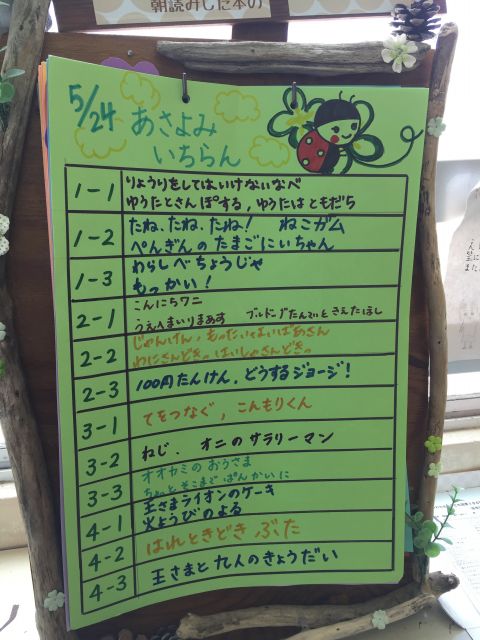 朝読みした本の
5/24 あさよみ
いちらん
1-1 りょうりをしてはいけないなべ
ゆうたとさんぽする、ゆうたはともだち
1-2 たね、たね、たね! ねこガム
ぺんぎんのたまごにいちゃん
1-3 わらしべちょうじゃ
もっかい!
2-1 こんにちワニ
うえへまいりまぁす ブルドッグたんていときえたほし
2-2 じゃんけん、もったいないばあさん
わにさんどきっ はいしゃさんどきっ
2-3 100円たんけん、どうするジョージ!
3-1 てをつなぐ、こんもりくん
3-2 ねじ、オニのサラリーマン
3-3 オオカミのおうさま
ちょっとそこまでぱんかいに
4-1 王さまライオンのケーキ
火ようびのよる
4-2 はれときどきぶた
4-3 王さまと九人のきょうだい